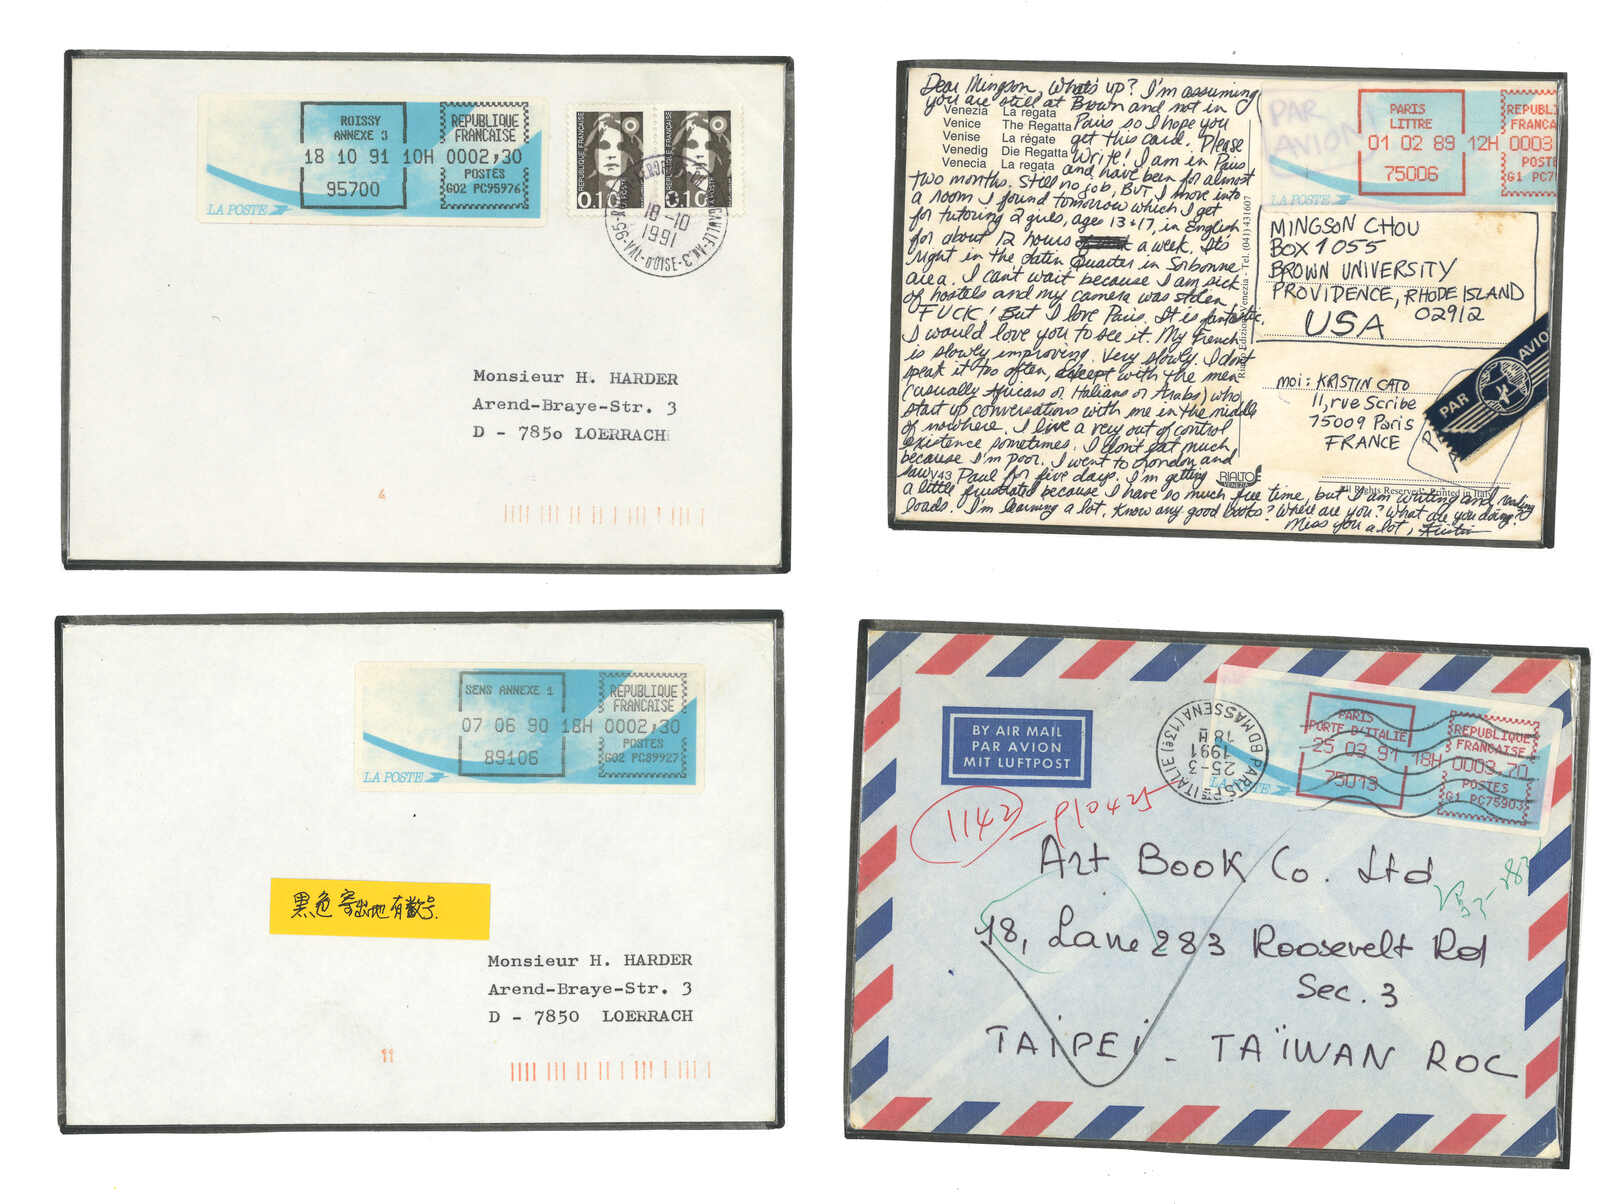 ROISSY
ANNEXE 3
REPUBLIQUE
FRANCAISE
18 10 91 10H 0002,30
POSTES
95700
G02 PC95976
LA POSTE
REPUBLIQUE FRANÇAISE
0.10
REPUBLIQUE FRANÇAISE
0.10
18-10
1991
VAL-D'OISE
Monsieur H. HARDER
Arend-Braye-Str. 3
D - 785o LOERRACH
Dear Mingson, What's up? I'm assuming
you are still at Brown and not in
Paris so I hope you
get this card. Please
Write! I am in Paris
and have been for almost
two months. Still no job, BUT I move into
a room I found tomorrow which I get
for tutoring 2 girls, ages 13+17, in English
for about 12 hours a week. It's
right in the Latin Quarter in Sorbonne
area. I can't wait because I am sick
of hostels and my camera was stolen
FUCK! But I love Paris. It is fantastic.
I would love you to see it. My French
is slowly improving. Very slowly. I don't
speak it too often, except with the men
(usually Africans or Italians or Arabs) who
start up conversations with me in the middle
of nowhere. I live a very out of control
existence sometimes. I don't eat much
because I'm poor. I went to London and
saw Paul for five days. I'm getting
a little frustrated because I have so much free time, but I am writing and reading
loads. I'm learning a lot. Know any good books? Where are you? What are you doing?
Miss you a lot, Kristin
Venezia La regata
Venice The Regatta
Venise La régate
Venedig Die Regatta
Venecia La regata
Rialto Edizioni Venezia - Tel. (041) 431607
V43
RIALTO
VENEZIA
All Rights Reserved Printed in Italy
PAR
AVION
PARIS
LITTRE
REPUBL
FRANCA
01 02 89 12H 0003
POST
75006
G1 PC7
LA POSTE
MINGSON CHOU
BOX 1055
BROWN UNIVERSITY
PROVIDENCE, RHODE ISLAND
02912
USA
moi: KRISTIN CATO
11, rue Scribe
75009 Paris
FRANCE
PAR AVION
SENS ANNEXE 1
REPUBLIQUE
FRANCAISE
07 06 90 18H 0002,30
POSTES
89106
G02 PC89927
LA POSTE
黑色寄出地有數号.
Monsieur H. HARDER
Arend-Braye-Str. 3
D - 7850 LOERRACH
BY AIR MAIL
PAR AVION
MIT LUFTPOST
PARIS
PORTE D'ITALIE
REPUBLIQUE
FRANCAISE
25 03 91 18H 0003,70
POSTES
75013
G1 PC75903
PARIS PTE ITALIE
BD MASSENA (13e)
18H
1991
25-3
1142
Art Book Co. Ltd
18, Lane 283 Roosevelt Rd
Sec. 3
TAÏPEÏ - TAÏWAN ROC